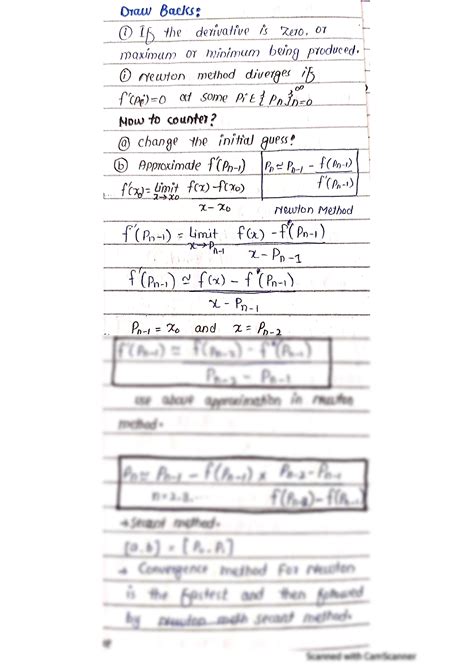 Draw Backs:
(i) If the derivative is zero, or
maximum or minimum being produced.
(i) Newton method diverges if
f'(Pi)=0 at some Pi ε { Pn }∞n=0
How to counter?
(a) change the initial guess!
(b) Approximate f'(Pn-1) Pn ≃ Pn-1 - f(Pn-1) / f'(Pn-1)
f'(x0) = limit x→x0 f(x)-f(x0) / x - x0
Newton Method
f'(Pn-1) = Limit x→Pn-1 f(x) - f(Pn-1) / x - Pn-1
f'(Pn-1) ≃ f(x) - f(Pn-1) / x - Pn-1
Pn-1 = x0 and x = Pn-2
f'(Pn-1) ≃ f(Pn-2) - f(Pn-1) / Pn-2 - Pn-1
use above approximation in newton
method.
Pn ≃ Pn-1 - f(Pn-1) × Pn-2 - Pn-1
→ Secant method.
[a,b] = [P0, P1]
→ Convergence method For Newton
is the fastest and then followed
by secant method.
Scanned with CamScanner